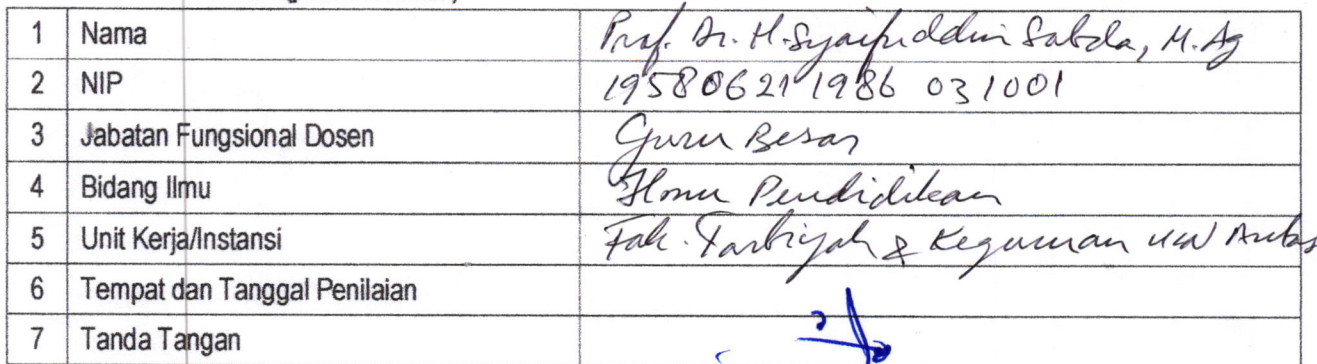 1 Nama Prof. Dr. H. Syaifuddin Sabda, M.Ag
2 NIP 19580621 1986 031001
3 Jabatan Fungsional Dosen Guru Besar
4 Bidang Ilmu Ilmu Pendidikan
5 Unit Kerja/Instansi Fak. Tarbiyah & Keguruan UIN Antas
6 Tempat dan Tanggal Penilaian
7 Tanda Tangan